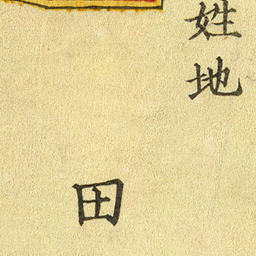 姓地
田